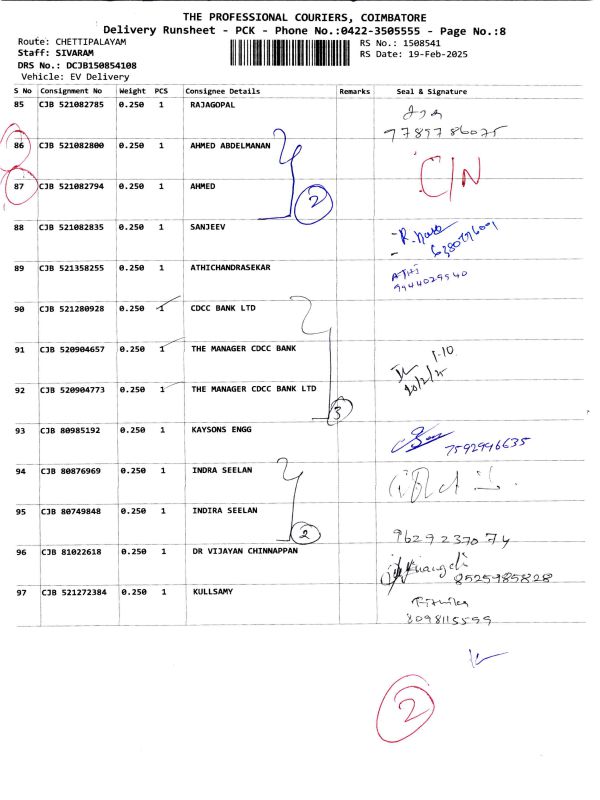 THE PROFESSIONAL COURIERS, COIMBATORE
Delivery Runsheet - PCK - Phone No.:0422-3505555 - Page No.:8
Route: CHETTIPALAYAM
RS No.: 1508541
Staff: SIVARAM
RS Date: 19-Feb-2025
DRS No.: DCJB150854108
Vehicle: EV Delivery
S No Consignment No Weight PCS Consignee Details Remarks Seal & Signature
85 CJB 521082785 0.250 1 RAJAGOPAL
86 CJB 521082800 0.250 1 AHMED ABDELMANAN
C/N
87 CJB 521082794 0.250 1 AHMED
2
88 CJB 521082835 0.250 1 SANJEEV
89 CJB 521358255 0.250 1 ATHICHANDRASEKAR
ATHI
9944029540
90 CJB 521280928 0.250 1 CDCC BANK LTD
91 CJB 520904657 0.250 1 THE MANAGER CDCC BANK
1-10
20/2/25
92 CJB 520904773 0.250 1 THE MANAGER CDCC BANK LTD
3
93 CJB 80985192 0.250 1 KAYSONS ENGG
7592996635
94 CJB 80876969 0.250 1 INDRA SEELAN
95 CJB 80749848 0.250 1 INDIRA SEELAN
2
9629237074
96 CJB 81022618 0.250 1 DR VIJAYAN CHINNAPPAN
8525985828
97 CJB 521272384 0.250 1 KULLSAMY
8098115599
2